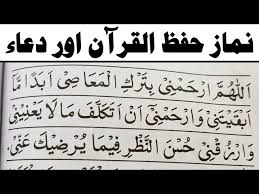 نماز حفظ القرآن اور دعاء
اَللّٰهُمَّ ارْحَمْنِيْ بِتَرْكِ الْمَعَاصِيْ اَبَدًا مَّا
اَبْقَيْتَنِيْ وَارْحَمْنِيْ اَنْ اَتَكَلَّفَ مَالَا يَعْنِيْنِيْ
وَارْزُقْنِيْ حُسْنَ النَّظَرِ فِيْمَا يُرْضِيْكَ عَنِّيْ